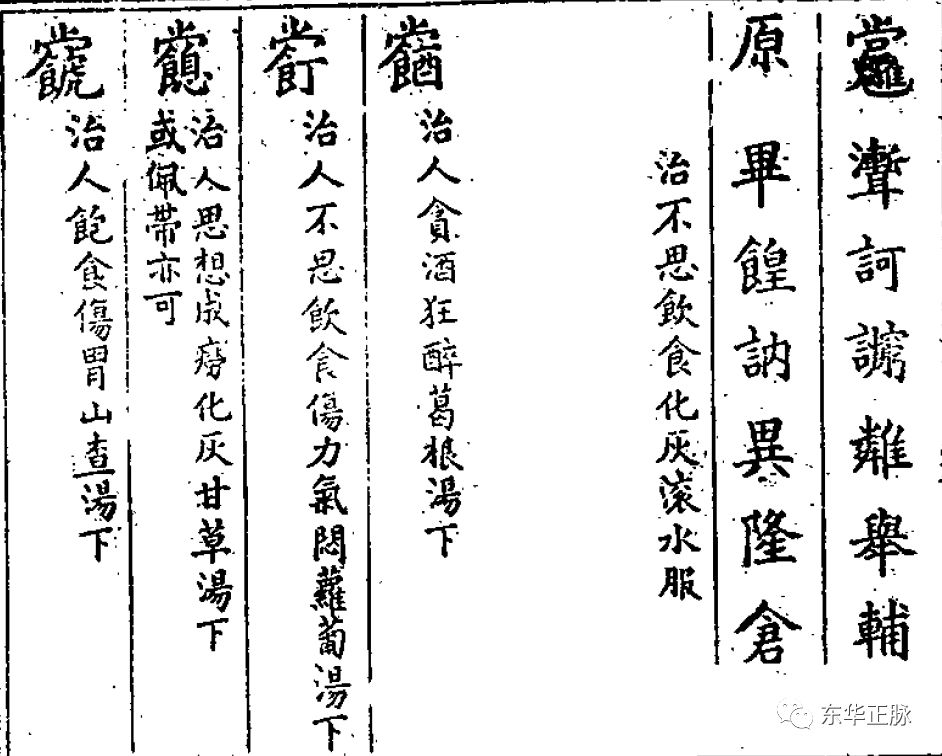 聻訶舉輔
原畢餭訥異隆倉
治不思飲食化灰滚水服
治人貪酒狂醉葛根湯下
治人不思飲食傷力氣悶蘿蔔湯下
治人思想成癆化灰甘草湯下
或佩帶亦可
治人飽食傷胃山查湯下
东华正脉